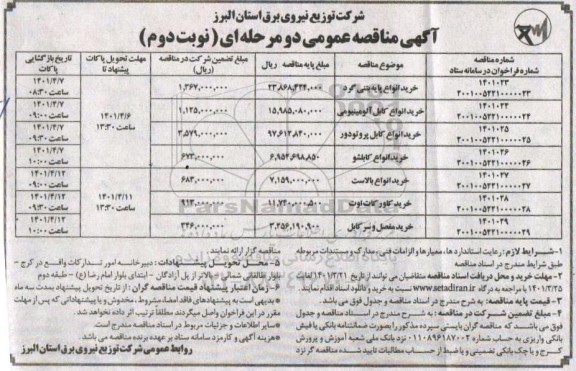 شرکت توزیع نیروی برق استان البرز
آگهی مناقصه عمومی دو مرحله ای (نوبت دوم)
شماره مناقصه
شماره فراخوان در سامانه ستاد
موضوع مناقصه
مبلغ پایه مناقصه ریال
مبلغ تضمین شرکت در مناقصه (ریال)
مهلت تحویل پاکات پیشنهاد تا
تاریخ بازگشایی پاکات
۱۴۰۱۰۲۳
۲۰۰۱۰۰۵۴۲۱۰۰۰۰۲۳ خرید انواع پایه بتنی گرد ۲۳,۸۶۸,۴۳۴,۰۰۰ ۱,۳۶۷,۰۰۰,۰۰۰ ۱۴۰۱/۴/۷ ساعت ۰۸:۳۰
۱۴۰۱۰۲۴
۲۰۰۱۰۰۵۴۲۱۰۰۰۰۲۴ خرید انواع کابل آلومینیومی ۱۵,۹۸۵,۰۸۰,۰۰۰ ۱,۱۲۵,۰۰۰,۰۰۰ ۱۴۰۱/۴/۶ ساعت ۱۳:۳۰ ۱۴۰۱/۴/۷ ساعت ۰۹:۰۰
۱۴۰۱۰۲۵
۲۰۰۱۰۰۵۴۲۱۰۰۰۰۲۵ خرید انواع کابل پروتودور ۹۷,۶۱۲,۸۴۰,۰۰۰ ۳,۵۷۹,۰۰۰,۰۰۰ ۱۴۰۱/۴/۷ ساعت ۰۹:۳۰
۱۴۰۱۰۲۶
۲۰۰۱۰۰۵۴۲۱۰۰۰۰۲۶ خرید انواع کابلشو ۶,۹۵۲,۶۹۸,۸۵۰ ۶۷۳,۰۰۰,۰۰۰ ۱۴۰۱/۴/۷ ساعت ۱۰:۰۰
۱۴۰۱۰۲۷
۲۰۰۱۰۰۵۴۲۱۰۰۰۰۲۷ خرید انواع بالاست ۷,۱۵۹,۰۰۰,۰۰۰ ۶۸۳,۰۰۰,۰۰۰ ۱۴۰۱/۴/۱۲ ساعت ۰۹:۰۰
۱۴۰۱۰۲۸
۲۰۰۱۰۰۵۴۲۱۰۰۰۰۲۸ خرید کاور کات اوت ۱۱,۷۴۰,۰۰۰,۵۰۰ ۹۱۴,۰۰۰,۰۰۰ ۱۴۰۱/۴/۱۱ ساعت ۱۳:۳۰ ۱۴۰۱/۴/۱۲ ساعت ۰۹:۳۰
۱۴۰۱۰۲۹
۲۰۰۱۰۰۵۴۲۱۰۰۰۰۲۹ خرید مفصل و سر کابل ۳,۲۵۶,۱۹۰,۹۰۰ ۳۴۶,۰۰۰,۰۰۰ ۱۴۰۱/۴/۱۲ ساعت ۱۰:۰۰
۱- شرایط لازم: رعایت استانداردها، معیارها و الزامات فنی، مدارک و مستندات مربوطه
طبق شرایط مندرج در اسناد مناقصه
۲- مهلت خرید و محل دریافت اسناد مناقصه: متقاضیان می توانند از تاریخ ۱۴۰۱/۳/۲۱ لغایت
۱۴۰۱/۳/۲۵ با مراجعه به درگاه www.setadiran.ir نسبت به خرید و دانلود اسناد اقدام نمایند.
۳- قیمت پایه مناقصه: به شرح مندرج در اسناد مناقصه و جدول فوق می باشد.
۴- مبلغ تضمین شرکت در مناقصه: به شرح مندرج در اسناد مناقصه و جدول
فوق می باشد که مناقصه گران بایستی سپرده مذکور را بصورت ضمانتنامه بانکی یا فیش
بانکی واریزی به حساب شماره ۰۱۱۰۸۹۶۱۸۷۰۰۲ نزد بانک ملی شعبه آموزش و پرورش
کرج و یا چک بانکی تضمینی و یا ضبط از حساب مطالبات تایید شده مناقصه گر نزد
مناقصه گزار ارائه نمایند.
۵- محل تحویل پیشنهادات: دبیرخانه امور تدارکات واقع در کرج -
بلوار طالقانی شمالی - بالاتر از پل آزادگان - ابتدای بلوار امام رضا (ع) - طبقه دوم
۶- زمان اعتبار پیشنهاد قیمت مناقصه گران: از تاریخ تحویل پیشنهاد بمدت سه ماه
* بدیهی است به پیشنهادهای فاقد امضاء، مشروط، مخدوش و یا پیشنهاداتی که پس از مهلت
مقرر در این فراخوان واصل میگردند مطلقاً ترتیب اثر داده نخواهد شد.
* سایر اطلاعات و جزئیات مربوط در اسناد مناقصه مندرج است.
* هزینه آگهی و کارمزد سامانه ستاد بر عهده برنده مناقصه می باشد.
روابط عمومی شرکت توزیع نیروی برق استان البرز
ParsNamadData